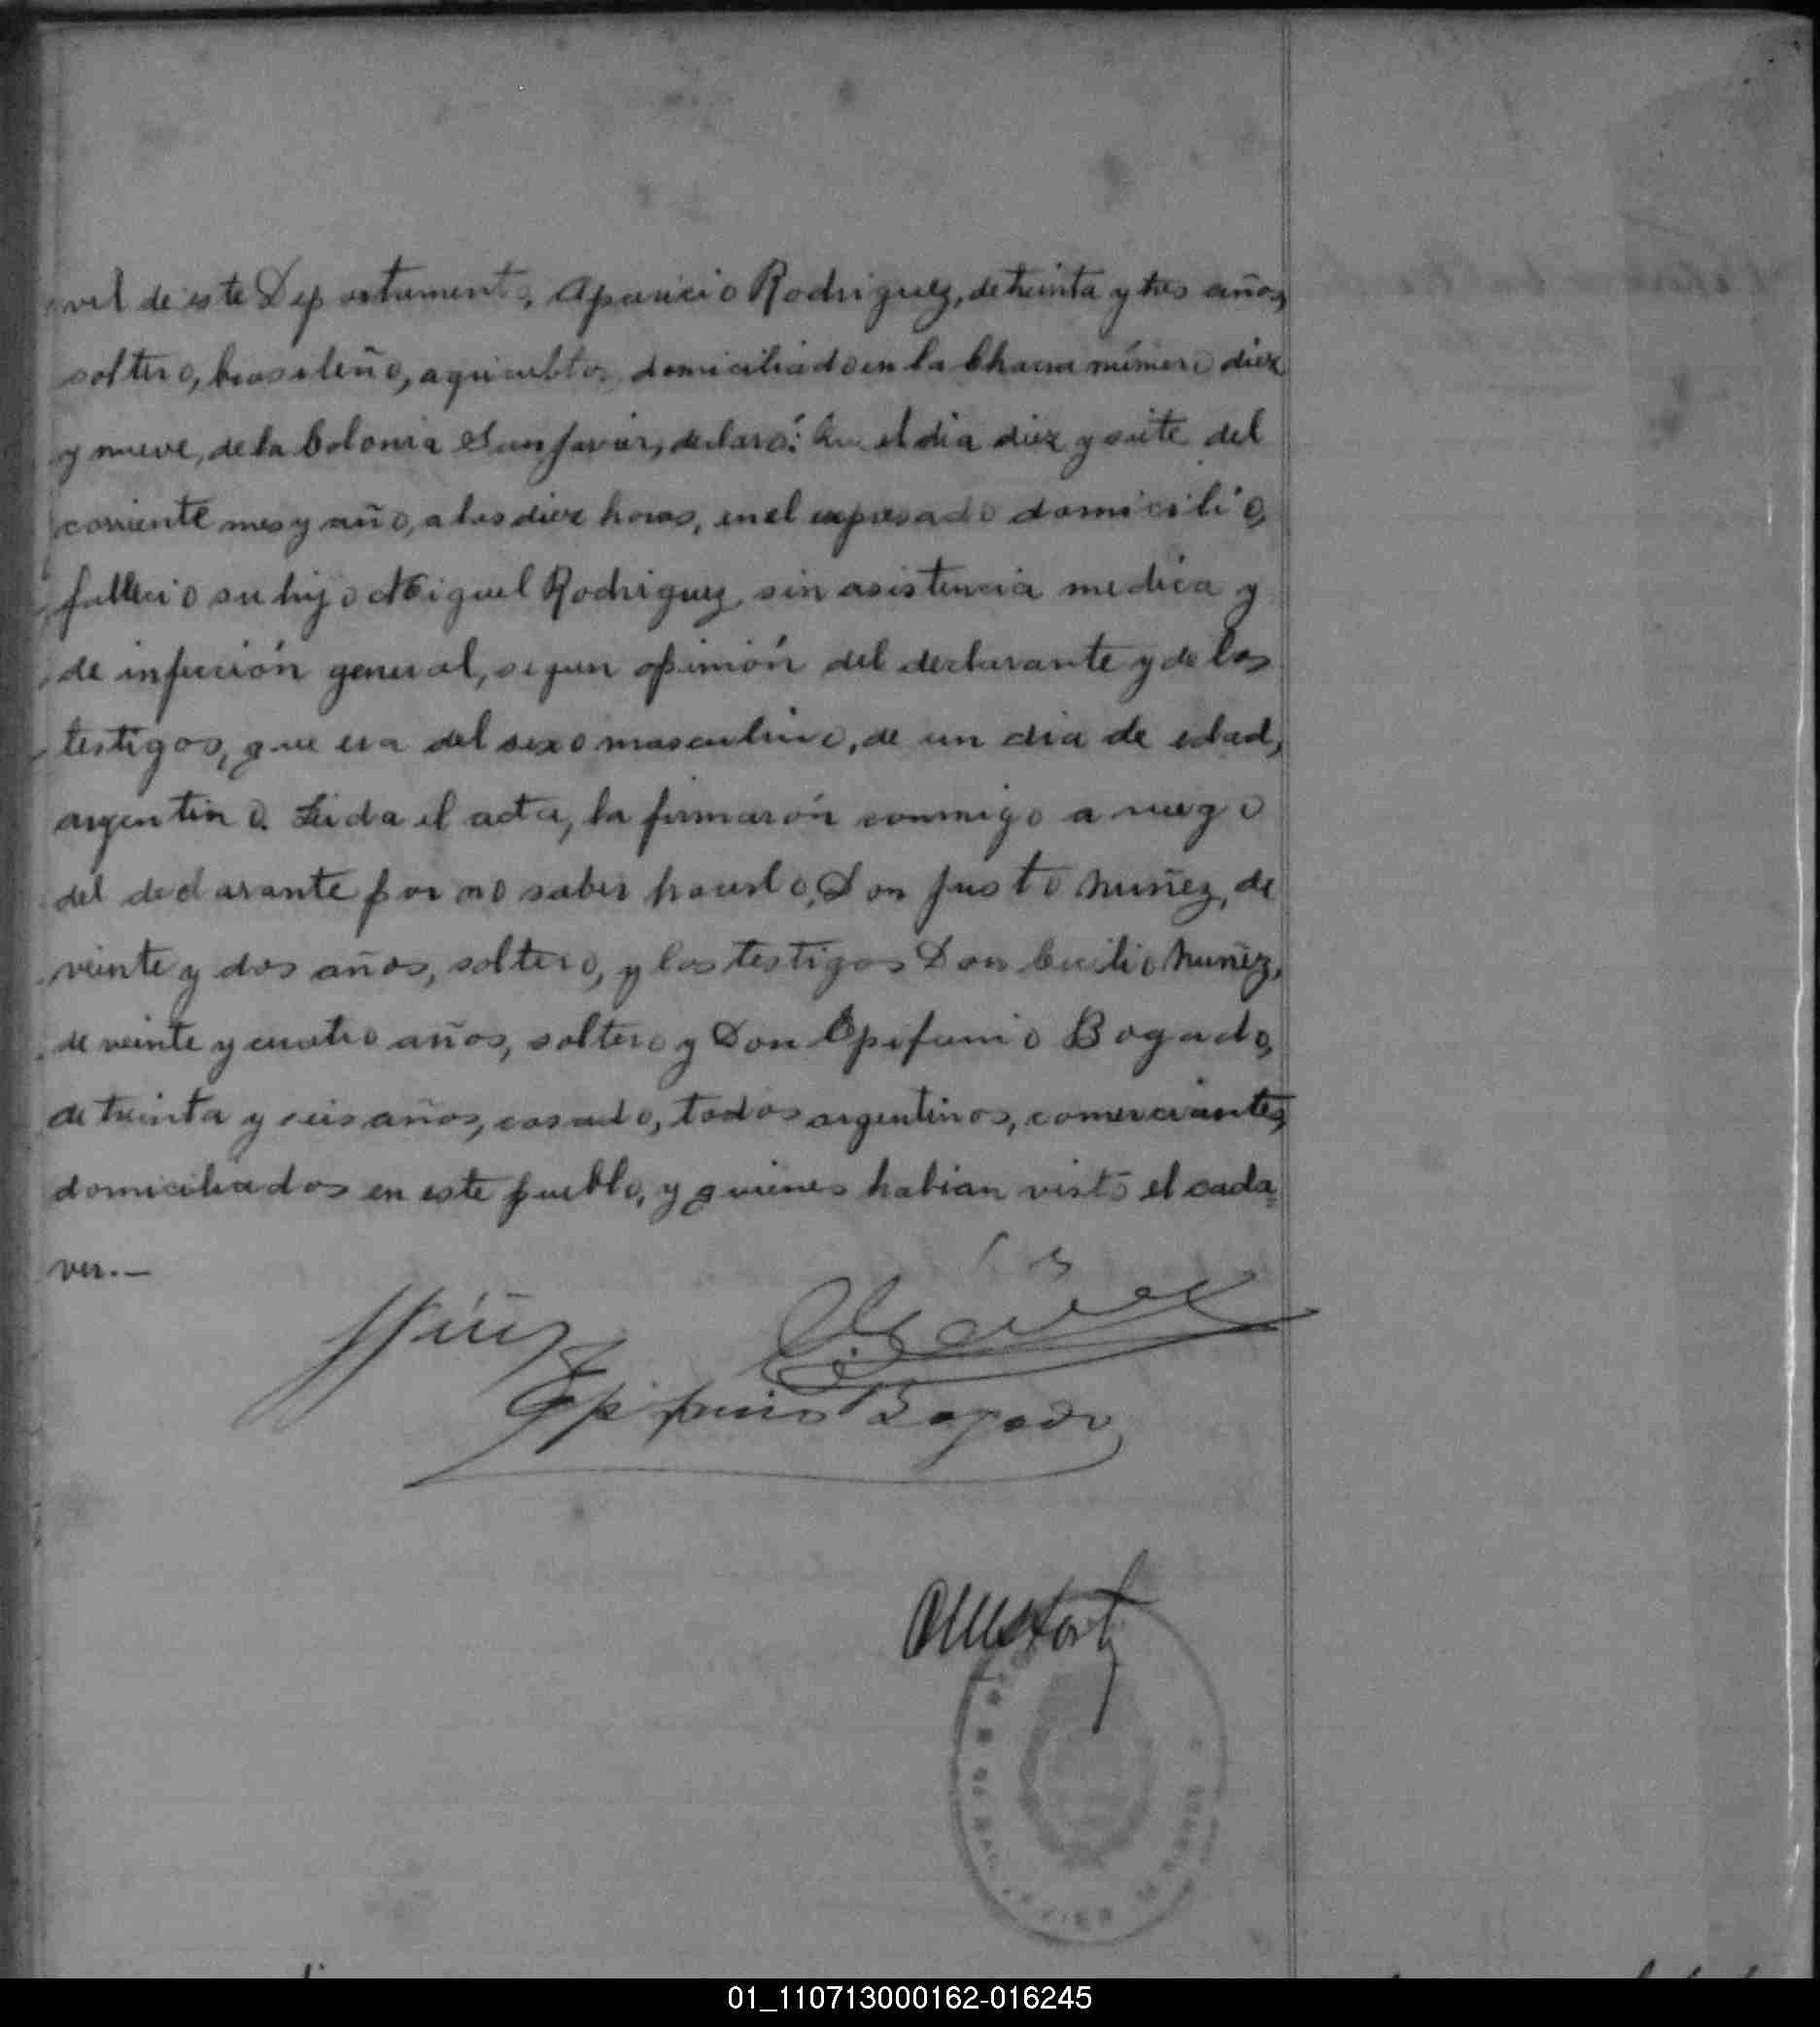 vil de este Departamento, Aparicio Rodriguez, de treinta y tres años,
soltero, brasileño, agricultor domiciliado en la Chacra número diez
y nueve, de la Colonia San Javier, declaró: Que el dia diez y siete del
corriente mes y año, a las diez horas, en el expresado domicilio,
fallecio su hijo Miguel Rodriguez, sin asistencia medica y
de infección general, segun opinión del declarante y de los
testigos, que era del sexo masculino, de un dia de edad,
argentino. Leida el acta, la firmarón conmigo a ruego
del declarante por no saber hacerlo, Don Justo Nuñez, de
veinte y dos años, soltero, y los testigos Don Cecilio Nuñez,
de veinte y cuatro años, soltero y Don Epifanio Bogado,
de treinta y seis años, casado, todos argentinos, comerciantes,
domiciliados en este pueblo, y quienes habian visto el cada
ver.—
Epifanio Bogado
01_110713000162-016245